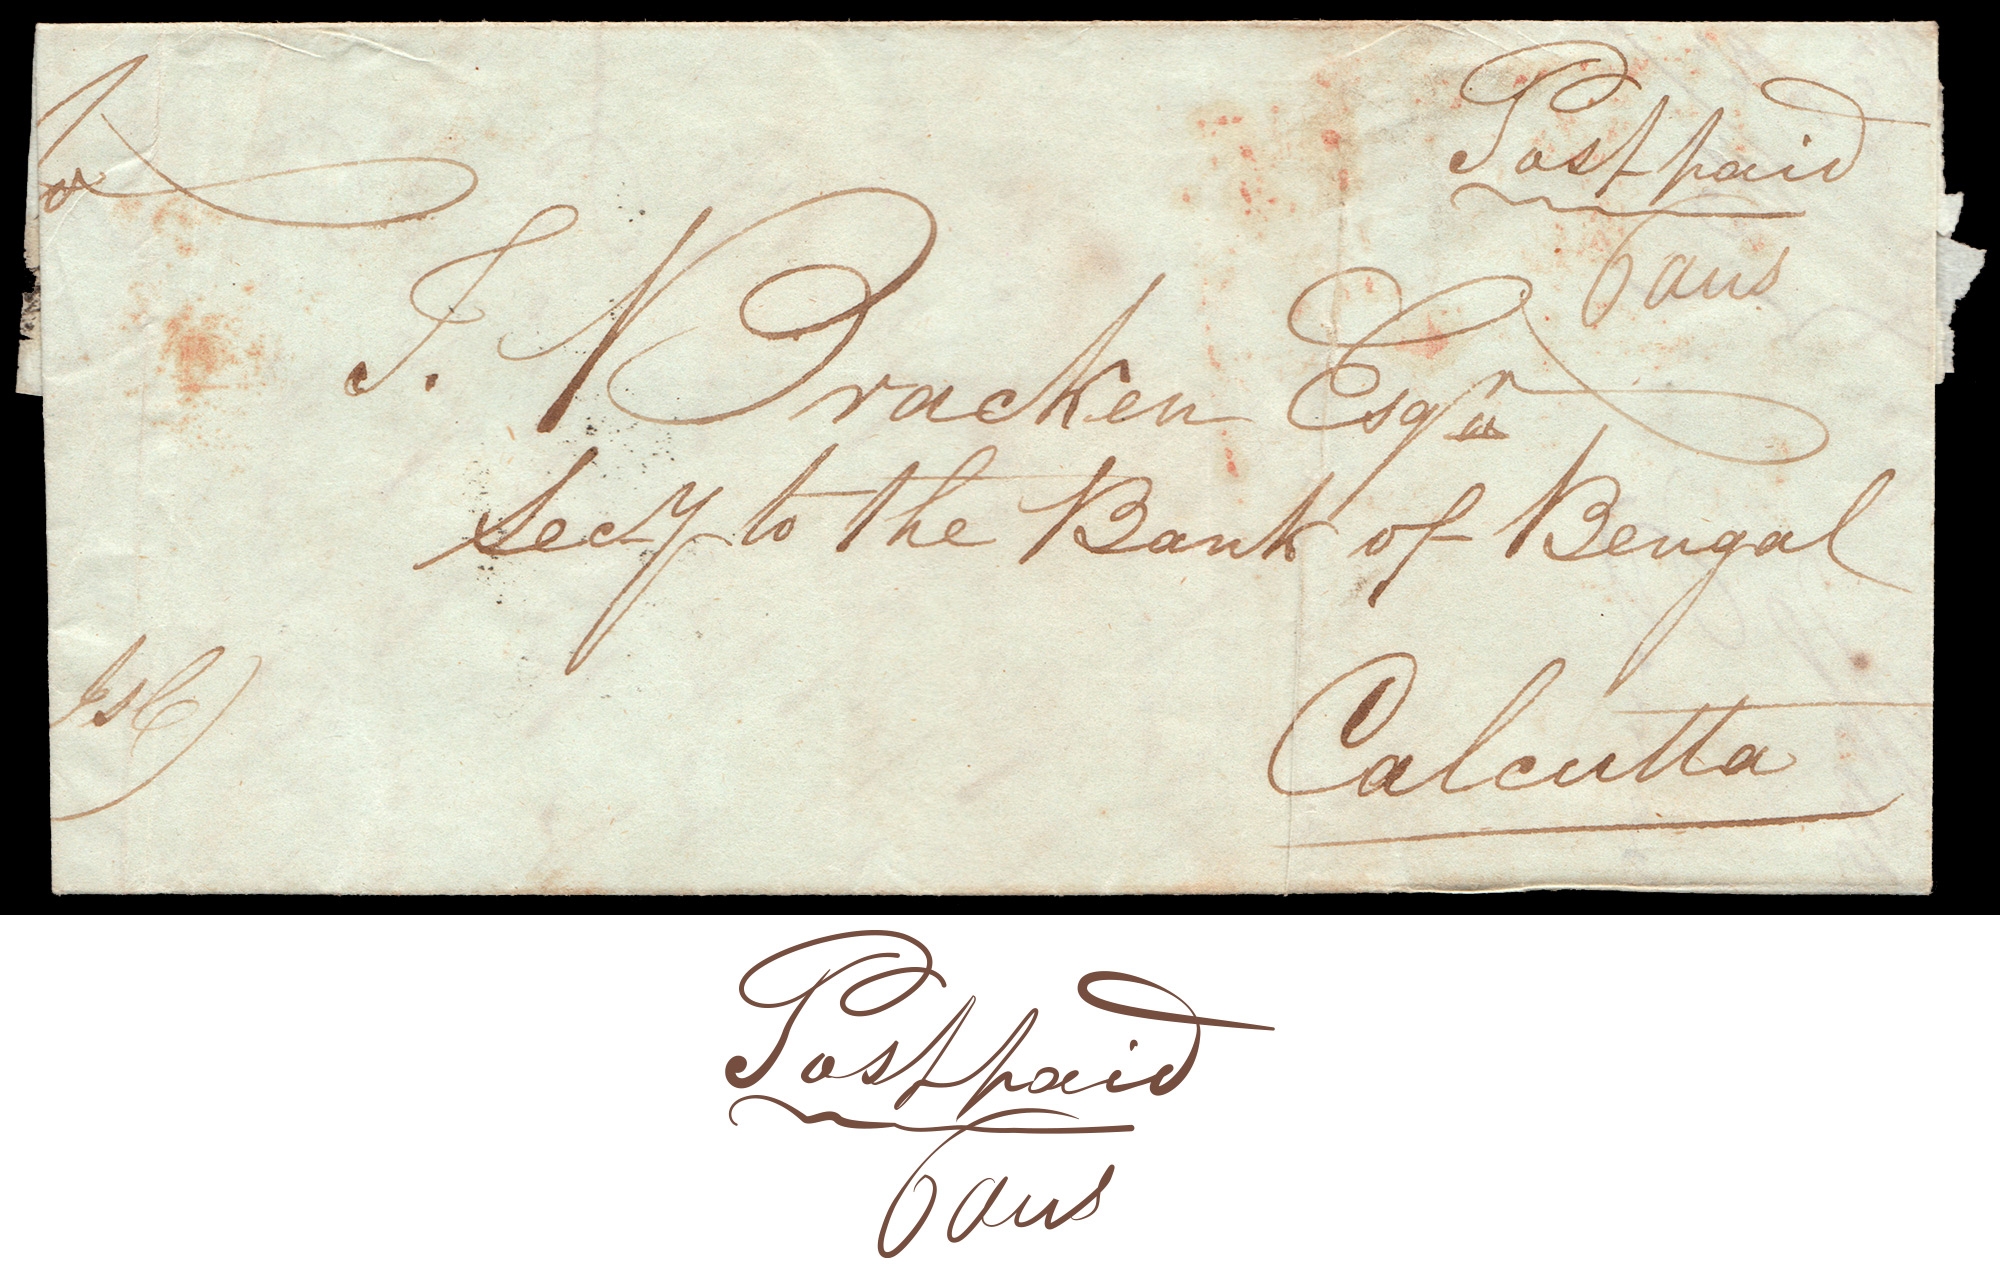 Post paid
6 ans
To
J. Bracken Esqr
Secy to the Bank of Bengal
Calcutta
Post paid
6 ans